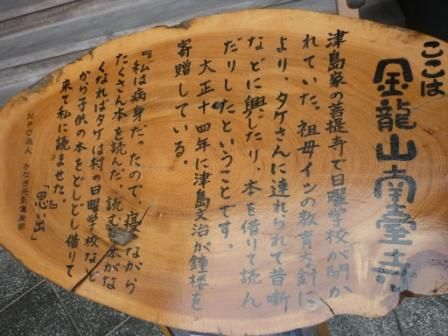 ここは
金龍山南臺寺
津島家の菩提寺で日曜学校が開か
れていた。祖母イシの教育方針に
より、タケさんに連れられて昔噺
などに興じたり、本を借りて読ん
だりしたということです。
大正十四年に津島文治が鐘楼を
寄贈している。
『私は病身だったので、寝ながら
たくさん本を読んだ。読む本がな
くなればタケは村の日曜学校など
から子供の本をどしどし借りて
来て私に読ませた。』
「思い出」
NPO法人 かなぎ元気倶楽部